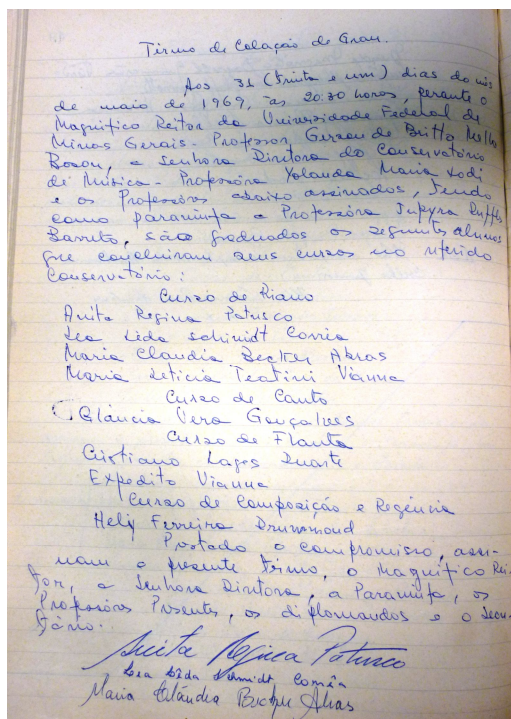 Têrmo de Colação de Grau.
Aos 31 (trinta e um) dias do mês
de maio de 1969, às 20:30 horas, perante o
Magnífico Reitor da Universidade Federal de
Minas Gerais - Professor Gerson de Britto Mello
Boson, a Senhora Diretora do Conservatório
de Música - Professôra Yolanda Maria Lodi
e os Professôres abaixo assinados, sendo
como paraninfa a Professôra Jupyra Duffles
Barreto, são graduados os seguintes alunos
que concluiram seus cursos no referido
Conservatório:
Curso de Piano
Anita Regina Patusco
Lea Lida Schimidt Corrêa
Maria Claudia Becker Abras
Maria Leticia Teatini Vianna
Curso de Canto
Gláucia Vera Gonçalves
Curso de Flauta
Cristiano Lages Duarte
Expedito Vianna
Curso de Composição e Regência
Hely Ferreira Drummond
Prestado o compromisso, assi-
nam o presente têrmo, o Magnífico Rei-
tor, a Senhora Diretora, a Paraninfa, os
Professôres Presentes, os diplomandos e o Secre-
tário.
Anita Regina Patusco
Lea Lida Schmidt Corrêa
Maria Cláudia Becker Abras